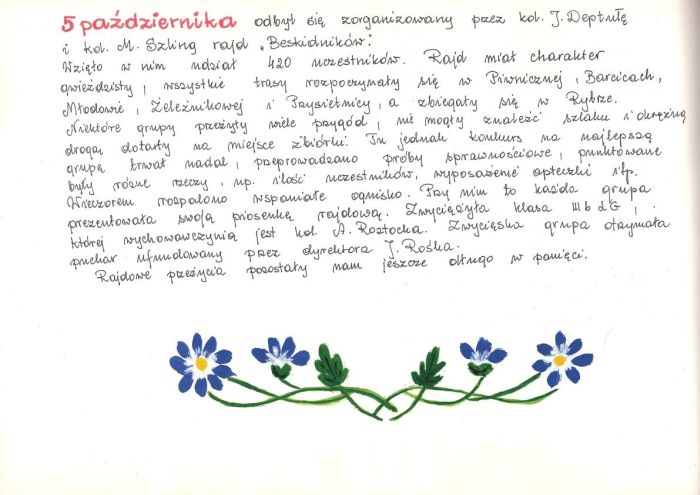 5 października odbył się zorganizowany przez kol. J. Deptułę
i kol. M. Szling rajd „Beskidników".
Wzięło w nim udział 420 uczestników. Rajd miał charakter
gwieździsty, wszystkie trasy rozpoczynały się w Piwnicznej, Barcicach,
Młodowie, Żeleźnikowej i Przysietnicy, a zbiegały się w Rytrze.
Niektóre grupy przeżyły wiele przygód, nie mogły znaleźć szlaku i okrężną
drogą dotarły na miejsce zbiórki. Tu jednak konkurs na najlepszą
grupę trwał nadal, przeprowadzano próby sprawnościowe, punktowane
były różne rzeczy, np. ilość uczestników, wyposażenie apteczki itp.
Wieczorem rozpalono wspaniałe ognisko. Przy nim to każda grupa
prezentowała swoją piosenkę rajdową. Zwyciężyła klasa III b LG,
której wychowawczynią jest kol. A. Roztocka. Zwycięska grupa otrzymała
puchar ufundowany przez dyrektora J. Rośka.
Rajdowe przeżycia pozostały nam jeszcze długo w pamięci.